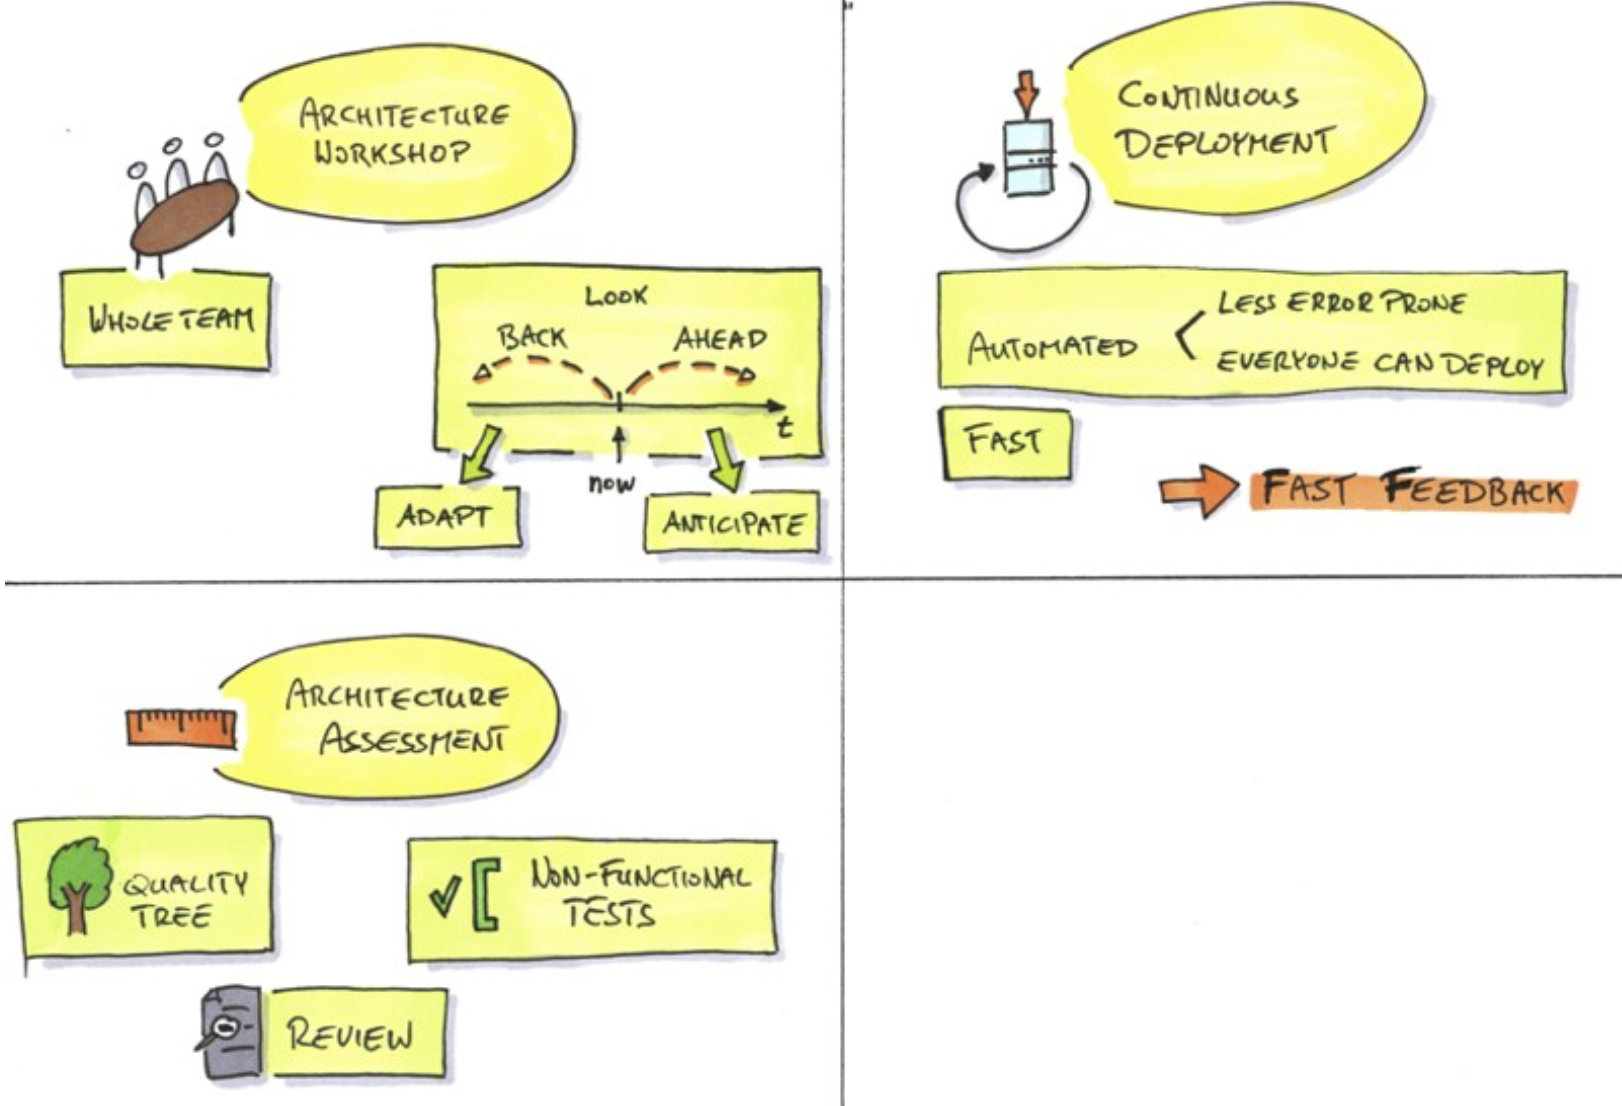 ARCHITECTURE
WORKSHOP
WHOLE TEAM
LOOK
BACK
AHEAD
t
now
ADAPT
ANTICIPATE
CONTINUOUS
DEPLOYMENT
AUTOMATED
LESS ERROR PRONE
EVERYONE CAN DEPLOY
FAST
FAST FEEDBACK
ARCHITECTURE
ASSESSMENT
QUALITY
TREE
NON-FUNCTIONAL
TESTS
REVIEW